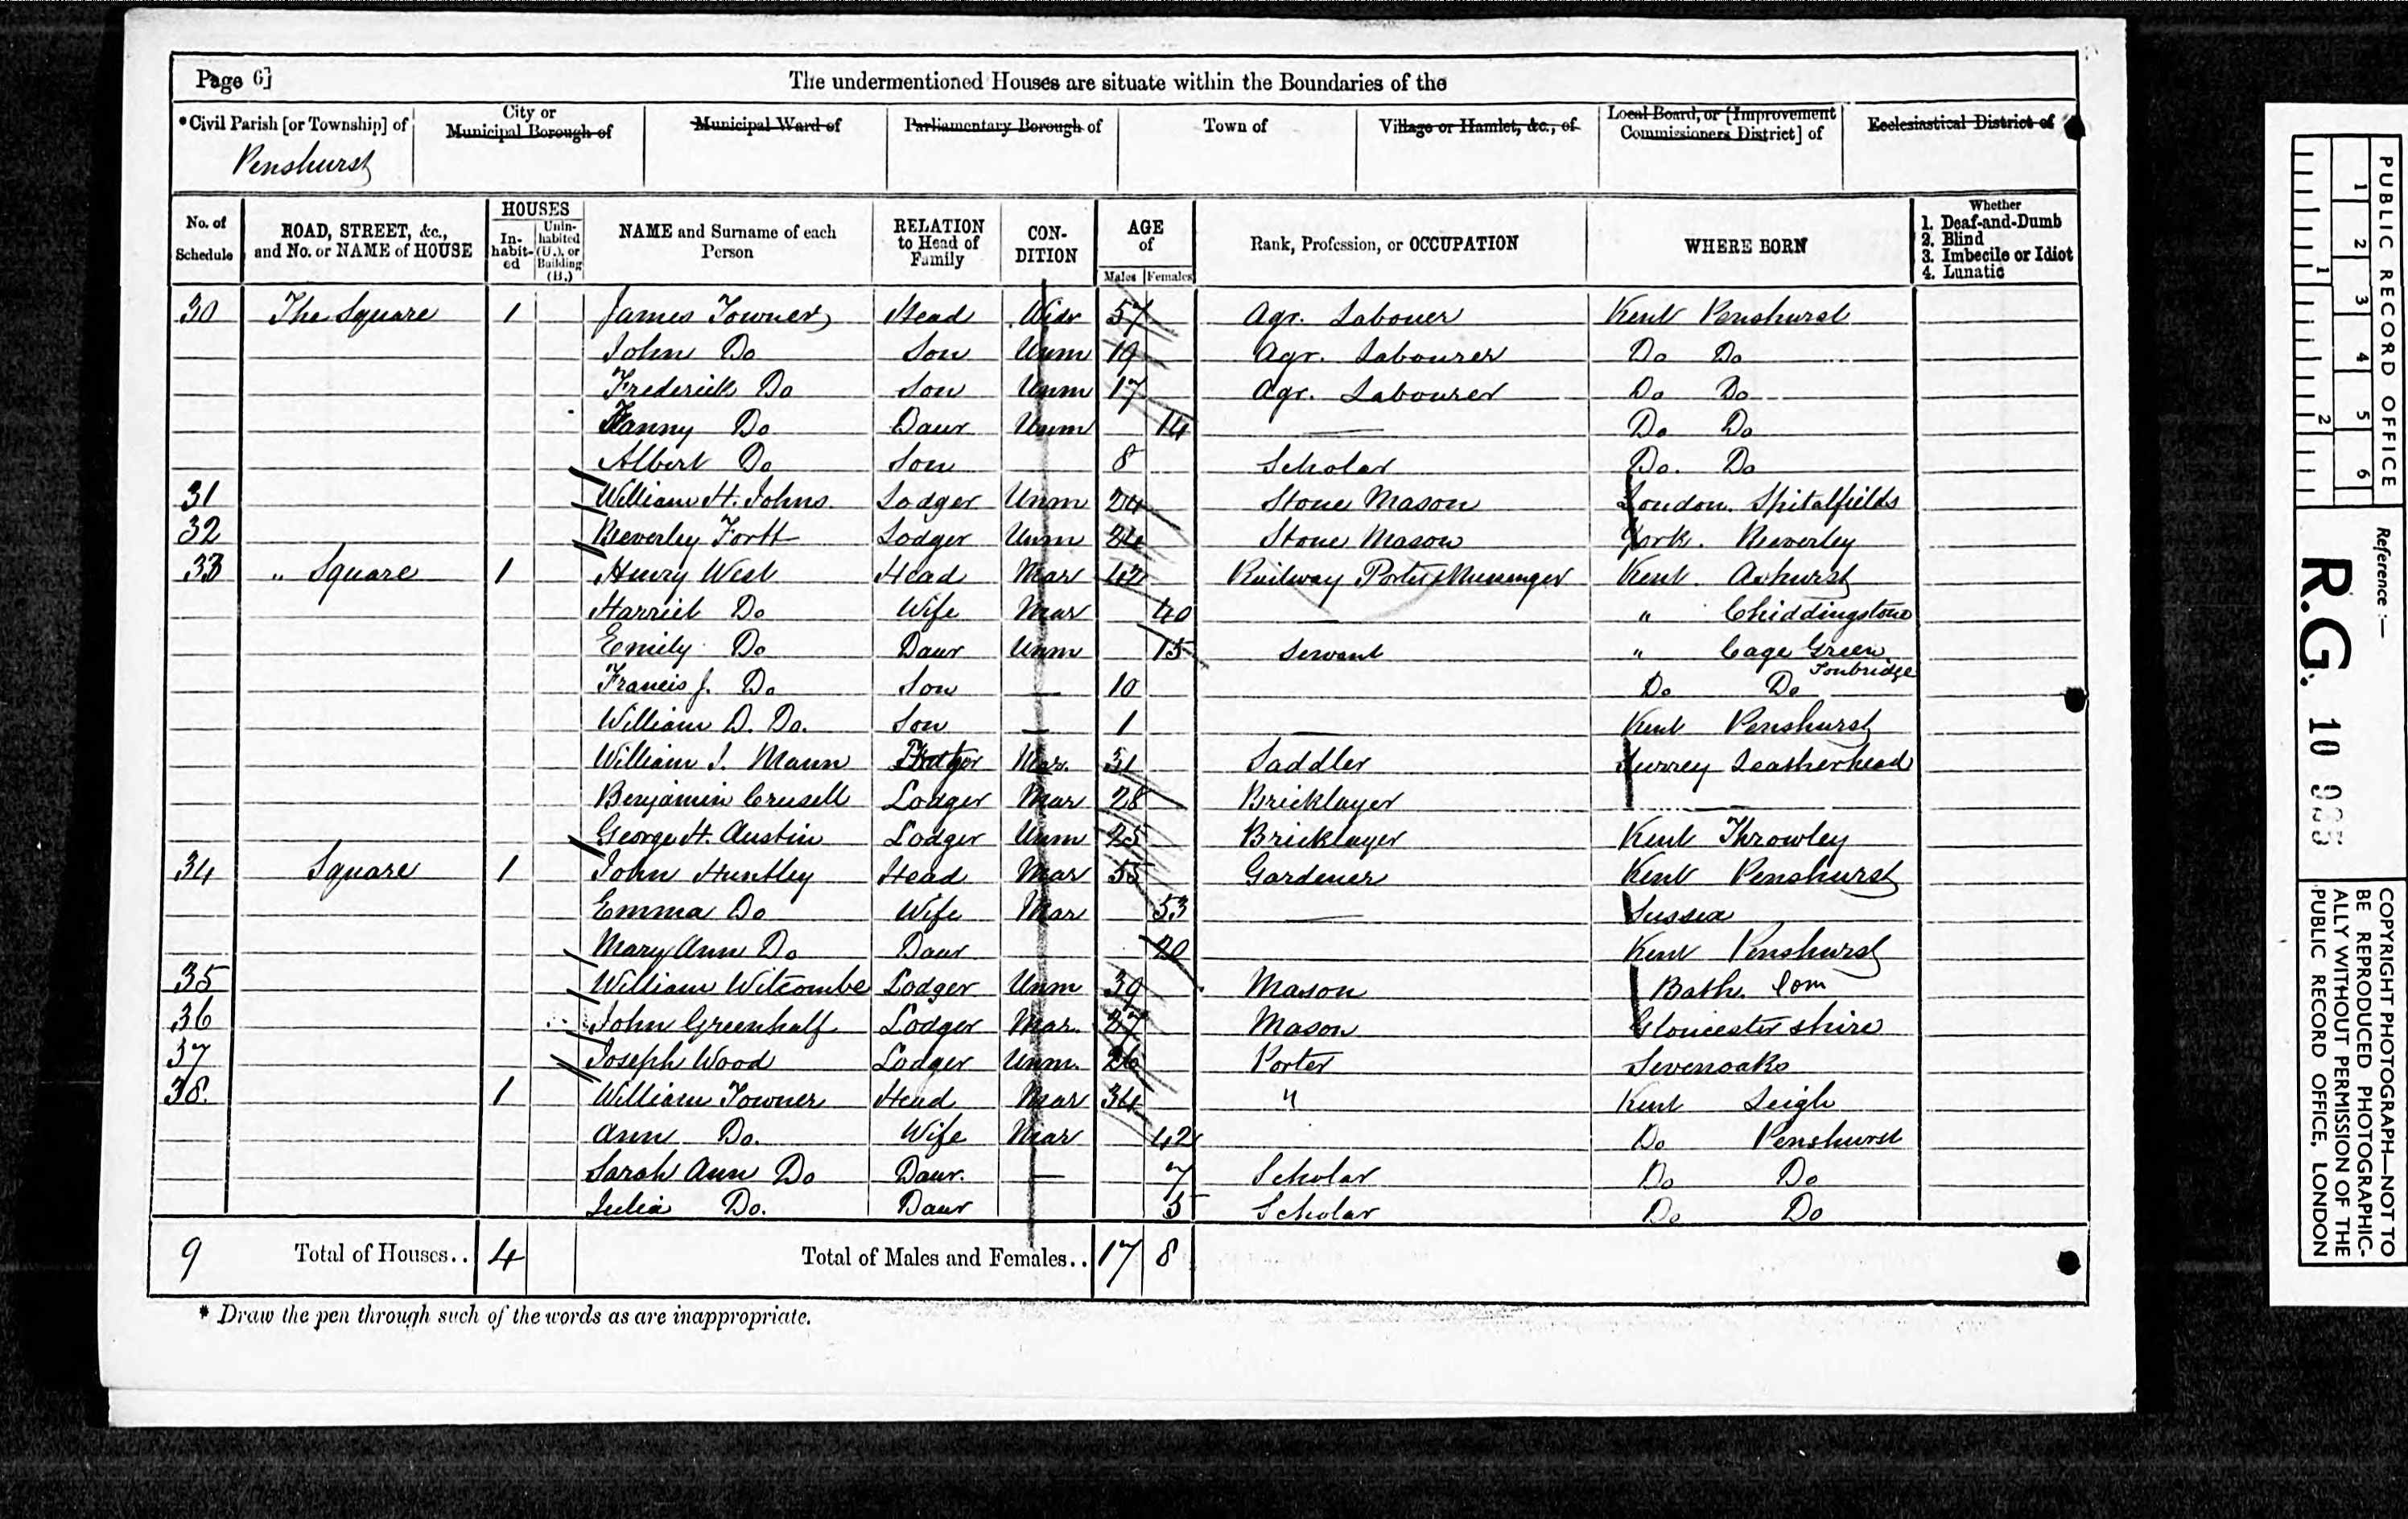 Page 6]
The undermentioned Houses are situate within the Boundaries of the
*Civil Parish [or Township] of
City or Municipal Borough of
Municipal Ward of
Parliamentary Borough of
Town of
Village or Hamlet, &c., of
Local Board, or [Improvement Commissioners District] of
Ecclesiastical District of
Penshurst
No. of Schedule
ROAD, STREET, &c., and No. or NAME of HOUSE
HOUSES
In-habit-ed
Unin-habited (U.), or Building (B.)
NAME and Surname of each Person
RELATION to Head of Family
CON-DITION
AGE of
Males Females
Rank, Profession, or OCCUPATION
WHERE BORN
Whether
1. Deaf-and-Dumb
2. Blind
3. Imbecile or Idiot
4. Lunatic
30 The Square 1 James Towner Head Widr 57 Agr. Labouer Kent Penshurst
John Do Son Unm 19 Agr. Labourer Do Do
Frederick Do Son Unm 17 Agr. Labourer Do Do
Fanny Do Daur Unm 14 Do Do
Albert Do Son 8 Scholar Do. Do
31 William H. Johns Lodger Unm 24 Stone Mason London Spitalfields
32 Beverley Fortt Lodger Unm Stone Mason York. Beverley
33 " Square 1 Henry West Head Mar 42 Railway Porter Messenger Kent. Ashurst
Harriet Do Wife Mar 40 " Chiddingstone
Emily Do Daur Unm 15 Servant " Cage Green
Tonbridge
Francis J. Do Son — 10 Do Do
William D. Do. Son — 1 Kent Penshurst
William J. Mann Mar. 31 Saddler Surrey Leatherhead
Benjamin Crusell Lodger Mar 28 Bricklayer
George H. Austin Lodger Unm 25 Bricklayer Kent Throwley
34 Square 1 John Huntley Head Mar 55 Gardener Kent Penshurst
Emma Do Wife Mar 53 Sussex
Mary Ann Do Daur 20 Kent Penshurst
35 William Witcombe Lodger Unm 39 Mason Bath. Som
36 John Greenhalf Lodger Mar. 37 Mason Gloucestershire
37 Joseph Wood Lodger Unm. 26 Porter Sevenoaks
38. 1 William Towner Head Mar 34 " Kent Leigh
Ann Do. Wife Mar 42 Do Penshurst
Sarah Ann Do Daur. — 7 Scholar Do Do
Julia Do. Daur 5 Scholar Do Do
9 Total of Houses.. 4 Total of Males and Females.. 17 8
* Draw the pen through such of the words as are inappropriate.
PUBLIC RECORD OFFICE
1 2 3 4 5 6
1 2
Reference :—
R.G. 10
COPYRIGHT PHOTOGRAPH—NOT TO
BE REPRODUCED PHOTOGRAPHIC-
ALLY WITHOUT PERMISSION OF THE
PUBLIC RECORD OFFICE, LONDON